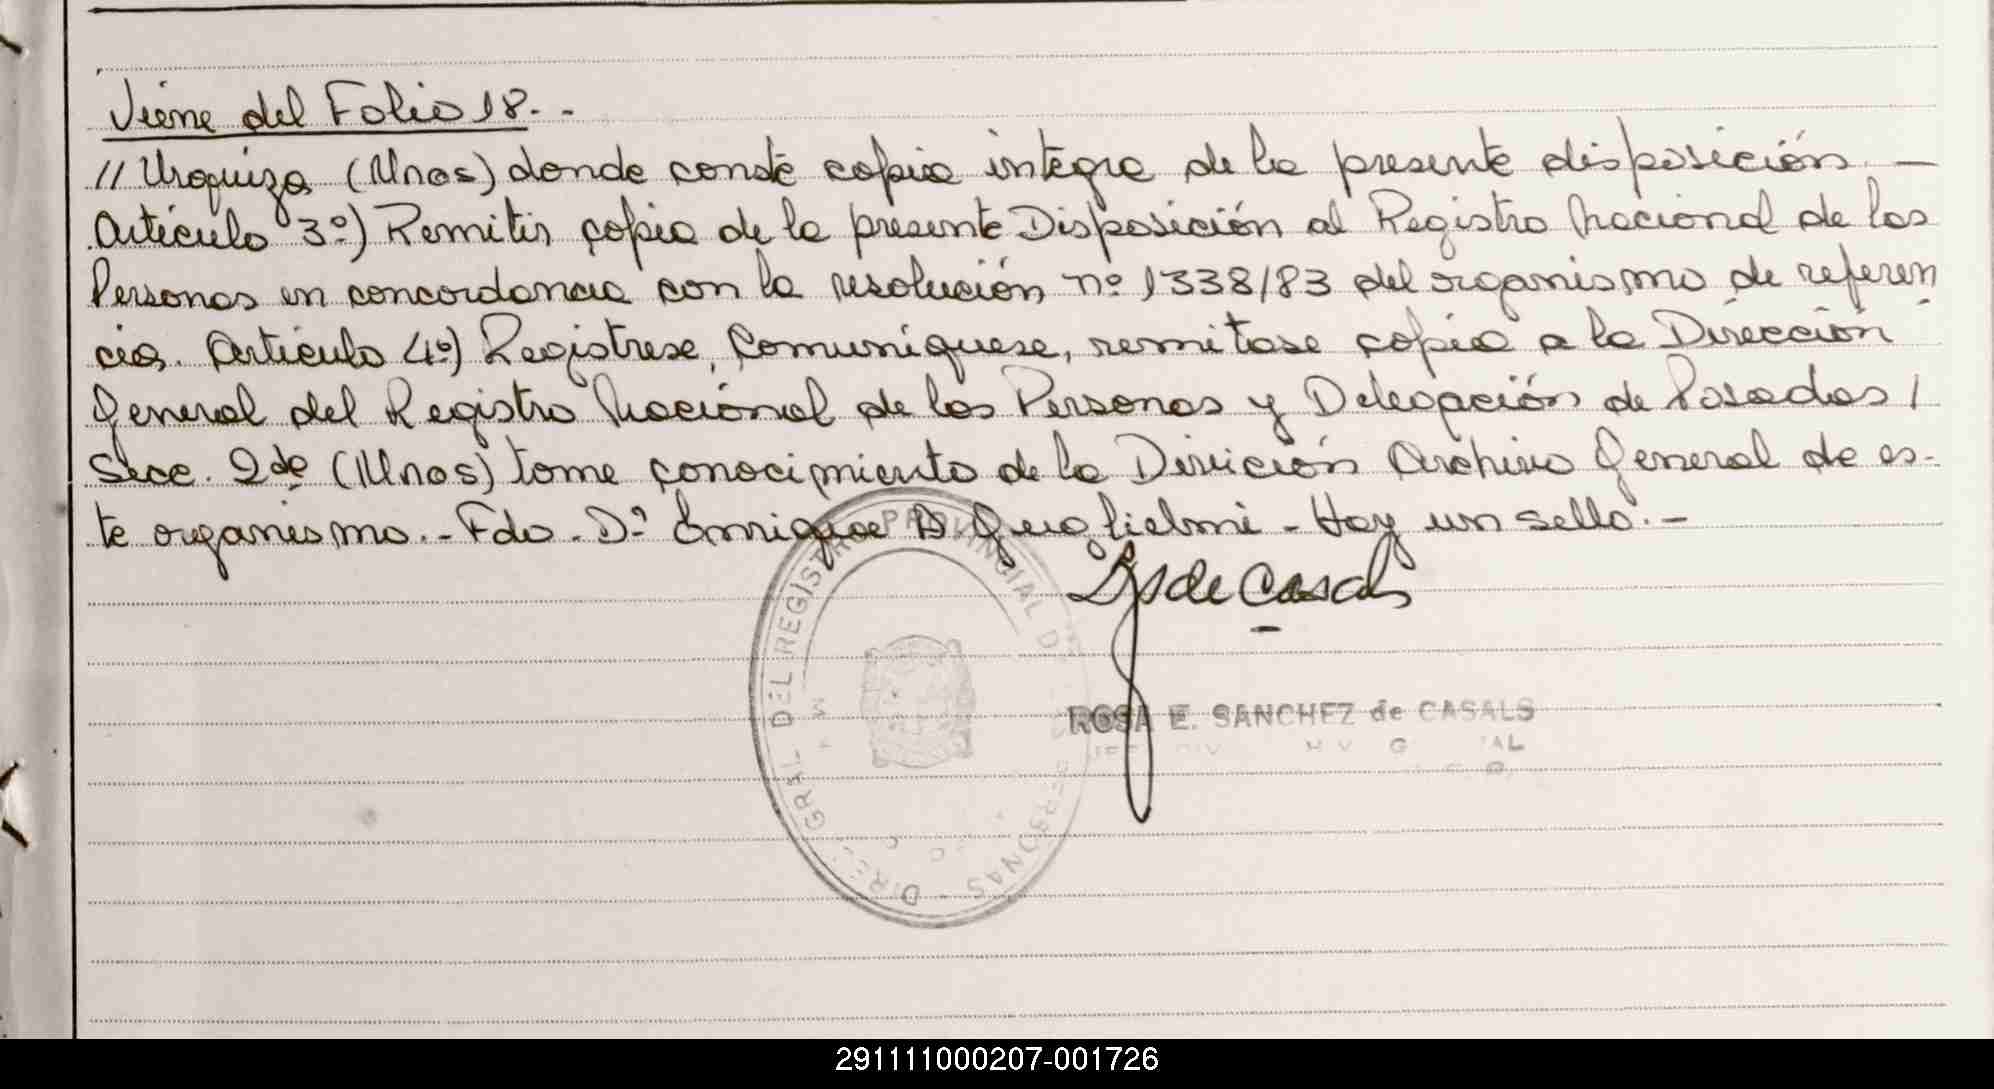 Viene del Folio 18.-
// Urquiza (Mnes) donde conste copia integra de la presente disposición. —
Artículo 3º) Remitir copia de la presente Disposición al Registro Nacional de las
Personas en concordancia con la resolución nº 1338/83 del organismo de referen
cia. Artículo 4º) Registrese, Comuníquese, remitase copia a la Dirección
General del Registro Nacional de las Personas y Delegación de Posadas /
Secc. 2da (Mnes) tome conocimiento de la División Archivo General de es-
te organismo.- Fdo. Dr Enrique D Guglielmi - Hay un sello.-
de Casals
DIREC. GRAL. DEL REGISTRO PROVINCIAL DE LAS PERSONAS
ROSA E. SANCHEZ de CASALS
291111000207-001726